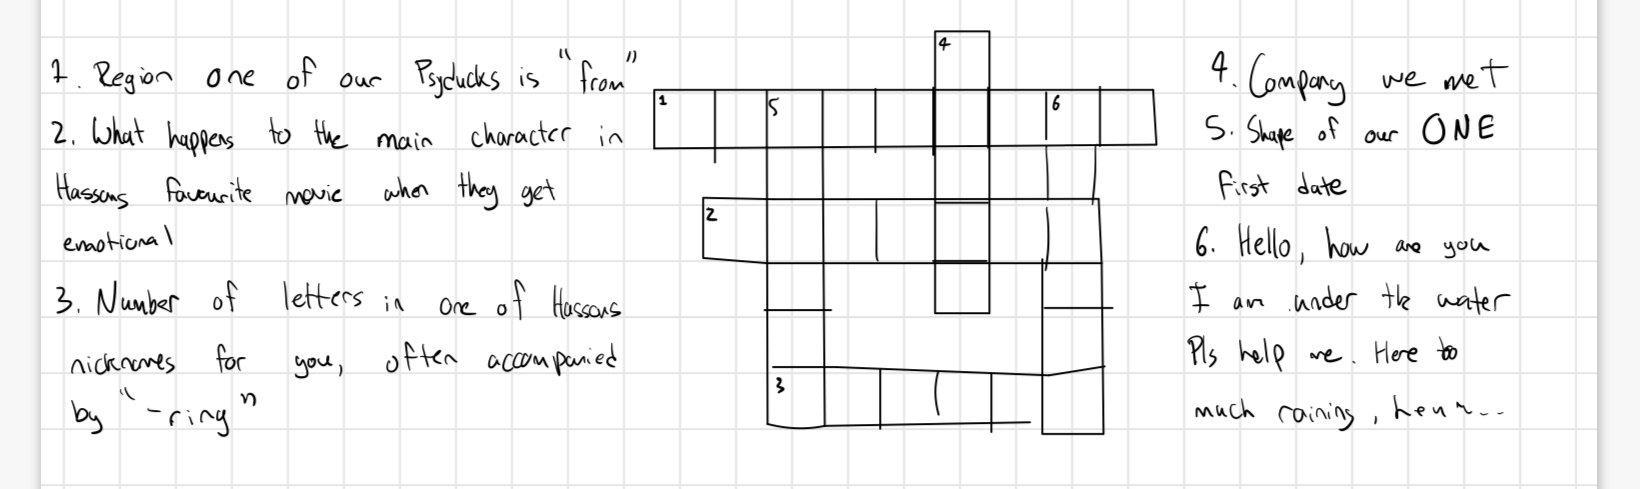 1. Region one of our Psyducks is "from"
2. What happens to the main character in
Hassans favourite movie when they get
emotional
3. Number of letters in one of Hassans
nicknames for you, often accompanied
by "-ring"
4
1 5 6
2
3
4. Company we met
5. Shape of our ONE
first date
6. Hello, how are you
I am under the water
Pls help me. Here to
much raining, heu~...